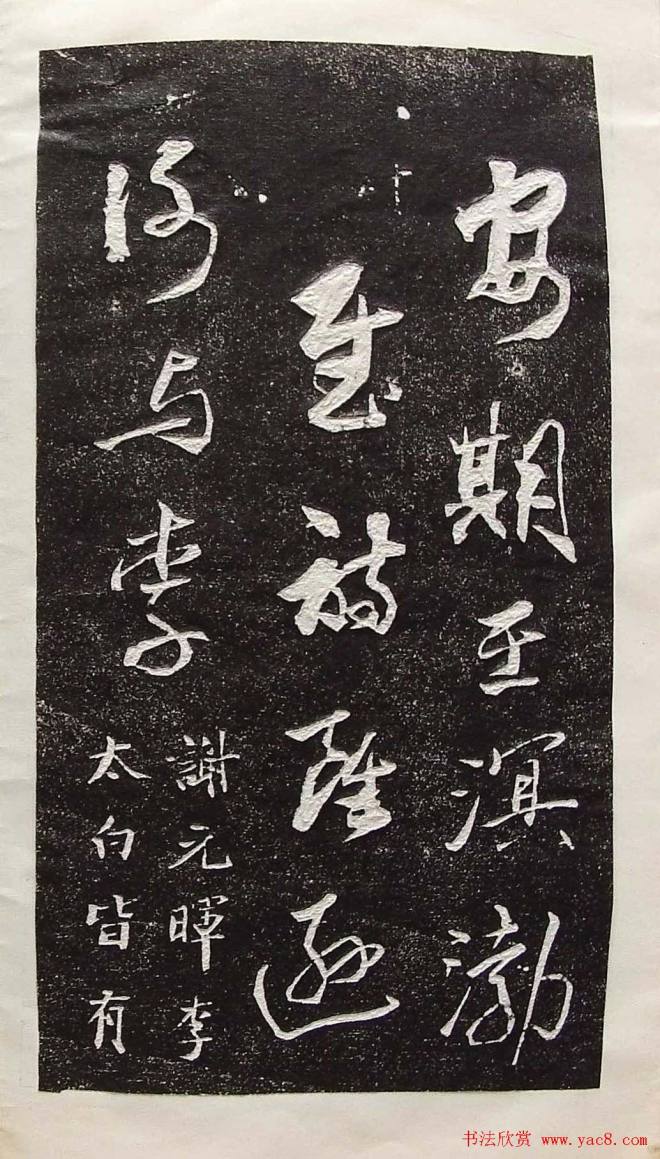 安期至溟渤
詩雖遜
謝与李
謝元暉李
太白皆有
书法欣赏 www.yac8.com